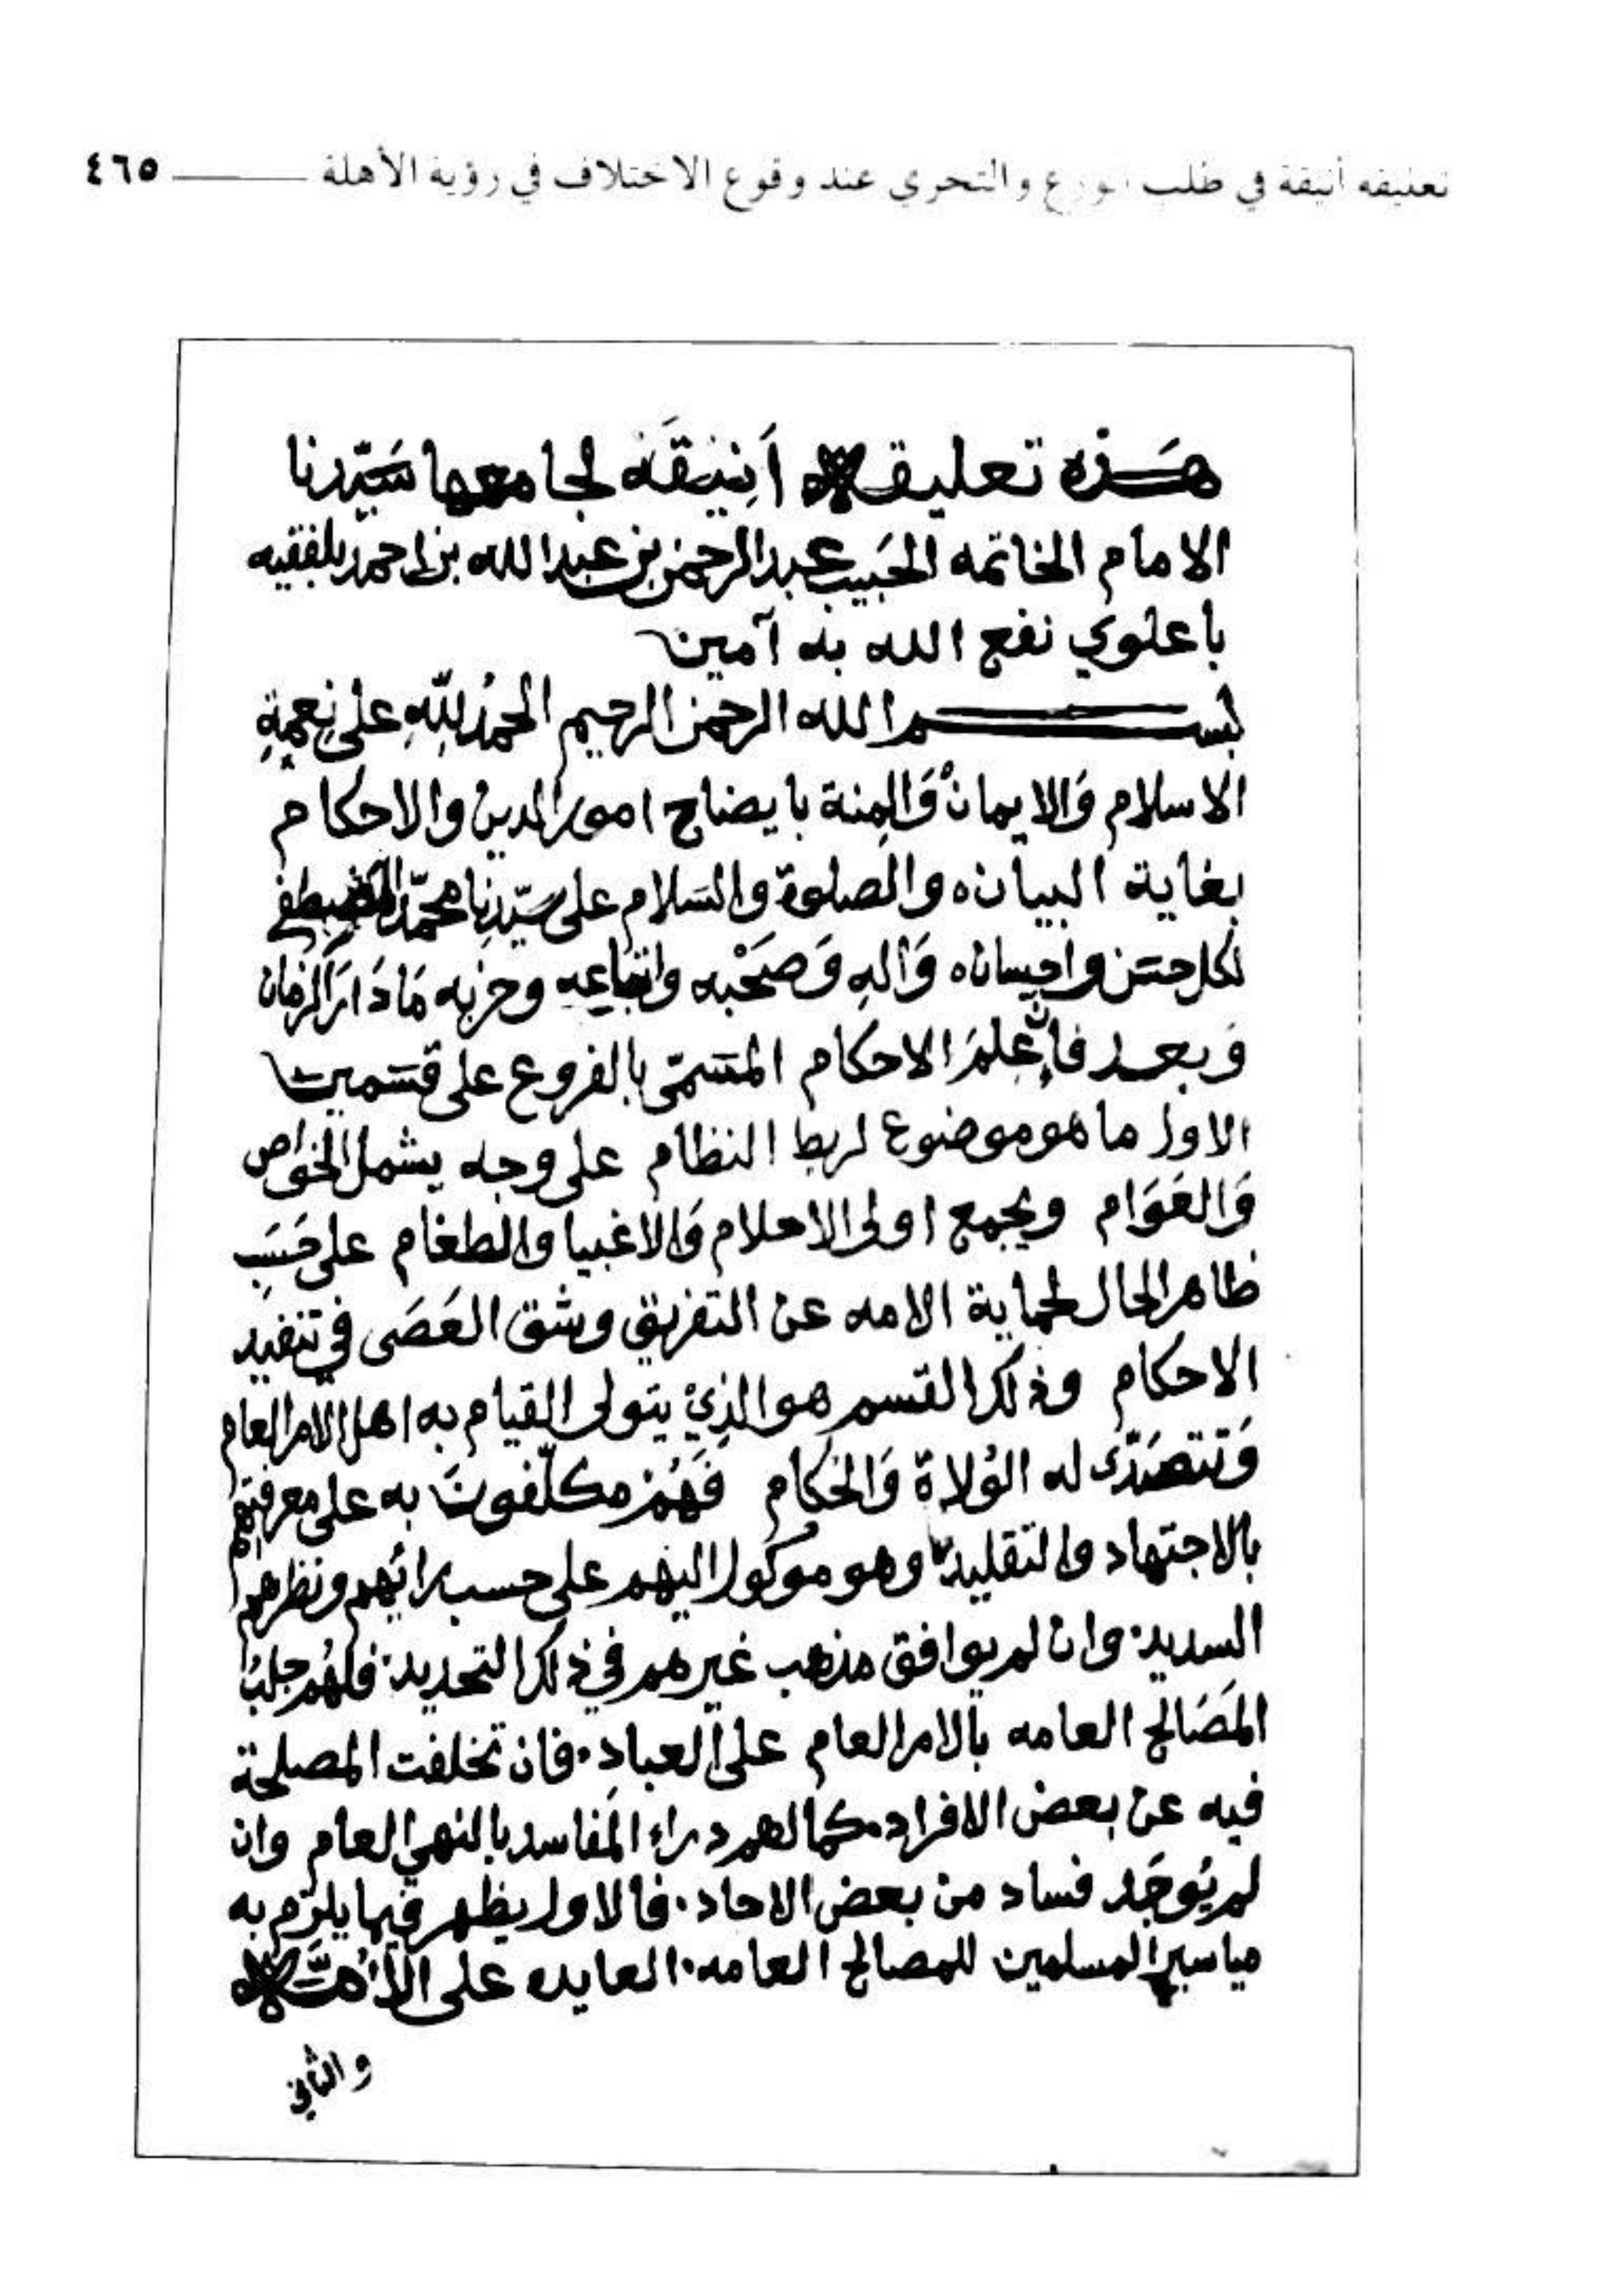 تعليقة أنيقة في طلب الورع والتحري عند وقوع الاختلاف في رؤية الأهلة ــــــــ ٤٦٥
هَذِه تعليقه أَنِيقَه لجامعها سَيّدنا
الامام الخاتمه الحَبيب عبدالرحمن بن عبدالله بن احمد بلفقيه
باعلوي نفع الله به آمين
بســــــم الله الرحمن الرحيم الحمدُ للّهِ على نِعمةِ
الاسلام وَالايمان وَالمِنة بايضاح امور الدين والاحكام
بغاية البيان ٥ والصلوة والسَلام على سَيّدِنا محمّد المصطفى
لكل حسَن واحسان ٥ وَآلهِ وَصَحْبه واتباعِه وحزبه مَا دَارَ الزمان
وَبعد فإنّ عِلمَ الاحكام المسَمّى بالفروع على قسَمين
الاول ما هو موضوع لربط النظام على وجه يشمل الخواص
وَالعَوَام ويجمع اولى الاحلام وَالاغبيا والطغام على حَسَبِ
ظاهر الحال لحماية الامه عن التفريق وشق العَصَى في تنفيد
الاحكام وذلك القسم هو الذِيْ يتولى القيام به اهل الامر العام
وَتتصَدّى له الوُلاة وَالحكام فَهُمْ مكلّفونَ به على معرفتهم
بالاجتهاد والتقليد وهو موكول اليهم على حسب رائهم ونظرهم
السديد · وان لم يوافق مذهب غيرهم في ذلك التحديد · فلهُم جلبُ
المَصَالح العامه بالامر العام على العبادِ · فان تخلفت المصلحة
فيه عن بعض الافراد · كما لهم دراء المَفاسد بالنهي العام وان
لم يُوجَد فساد من بعض الاحاد · فالاول يظهر فيما يلزم به
مياسير المسلمين للمصالح العامه · العايده على الأُمّه
والثاني